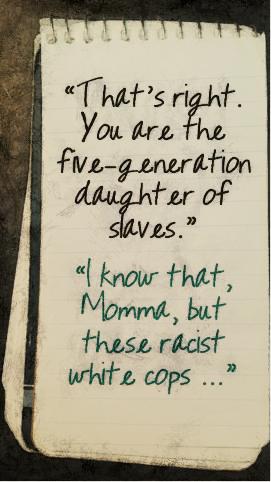 “That’s right.
You are the
five-generation
daughter of
slaves.”
“I know that,
Momma, but
these racist
white cops ...”